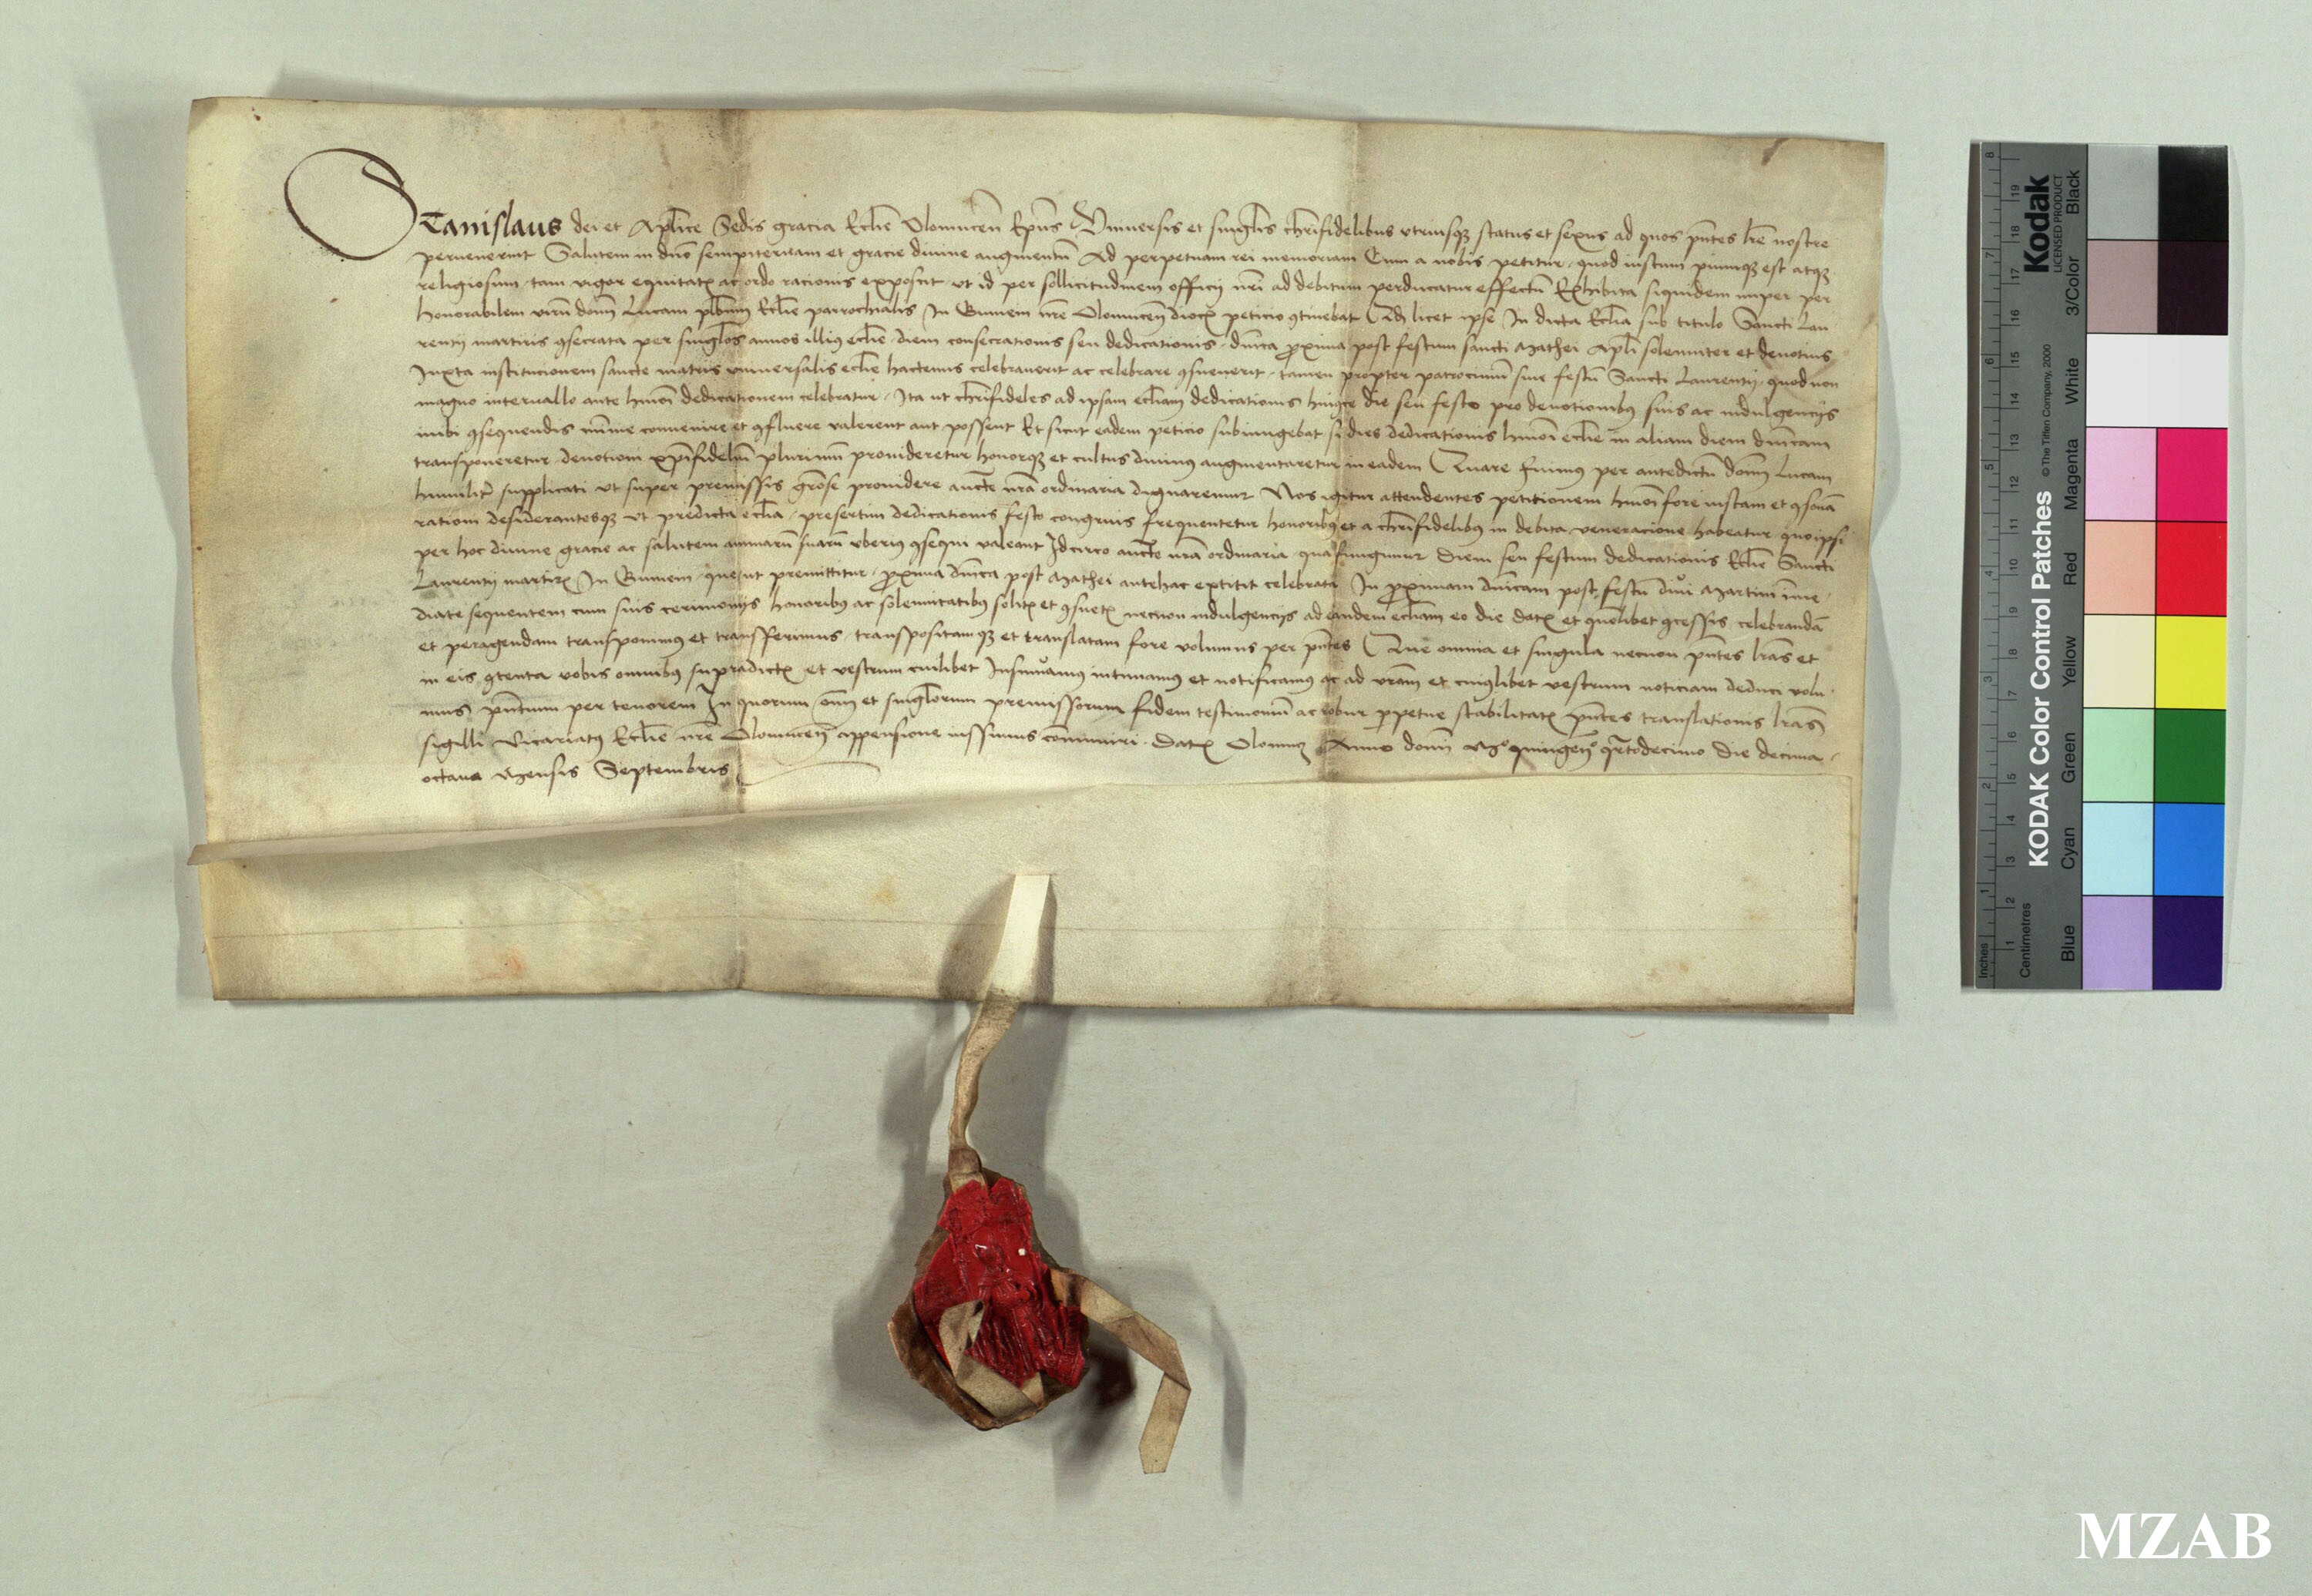 Stanislaus dei et Aplice Sedis gracia Ecclie Olomucen̄ Ep̄us Vniuersis et singlis chrīfidelibus vtriusqȝ status et sexus ad quos pn̄tes lr̄e nostre
peruenerint Salutem in dn̄o sempiternam et gracie diuine augmentū Ad perpetuam rei memoriam Cum a nobis petitur quod iustum piumqȝ est atqȝ
religiosum tam vigor equitatꝭ ac ordo racionis exposcit vt id per sollicitudinem officij nr̄i ad debitum perducatur effectū Exhibita siquidem nuper per
honorabilem virū domī Lucam plbm̄ Ecclie parrochialis In nr̄e Olomucen̄ diocꝭ peticio ꝯtinebat licet ipse In dicta Ecclia sub titulo Sancti Lau
rentij martiris ꝯsecrata per singlos annos illiꝰ ecclie diem consecrationis seu dedicationis dn̄ica proxima post festum sancti Mathei Apli solenniter et deuotius
Iuxta institucionem sancte matris vniuersalis ecclie hactenus celebrauerit ac celebrare ꝯsueuerit tamen propter patrociniū siue festū Sancti Laurentij quod non
magno interuallo ante hmōi dedicationem celebratur Ita ut chrīfideles ad ipsam eccliam dedicationis die seu festo pro deuotionibꝰ suis ac indulgencijs
inibi ꝯsequendis mīme conuenire et ꝯfluere valerent aut possent Et sicut eadem peticio subiungebat si dies dedicationis hmōi ecclie in aliam diem dn̄icam
transponeretur deuotioni xp̄ifideliū plurimū prouideretur honorqȝ et cultus diuinus augmentaretur in eadem Quare fuimus per antedictū domī Lucam
humilitꝭ supplicati vt super premissis gr̄ose prouidere auctē nr̄a ordinaria dignaremur Nos igitur attendentes petitionem hmōi fore iustam et ꝯsonā
rationi desiderantesqȝ vt predicta ecclia presertim dedicationis festo congruis frequentetur honoribꝰ et a chrīfidelibꝰ in debita veneracione habeatur quo ipsi
per hoc diuine gracie ac salutem animarū suarū vberiꝰ ꝯsequi valeant Idcirco auctē nr̄a ordinaria qua fungimur Diem seu festum dedicationis Ecclie Sancti
Laurentij martirꝭ In que ut premittitur proxima dn̄ica post Mathei antehac extitit celebrata In proximam dn̄icam post festū diui Martini īme
diate sequentem cum suis cerimonijs honoribꝰ ac solennitatibꝰ solitꝭ et ꝯsuetꝭ necnon indulgencijs ad eandem eccliam eo die datꝭ et quōlibet ꝯcessis celebrandā
et peragendam transponimus et transferimus transpositamqȝ et translatam fore volumus per pn̄tes Que omnia et singula necnon pn̄tes lr̄as et
in eis ꝯtenta vobis omnibus supradictꝭ et vestrum cuilibet Insinuamus intimamus et notificamus ac ad vr̄am et cuiꝰlibet vestrum noticiam deduci volu
mus pn̄tium per tenorem In quorum om̄ et singlorum premissorum fidem testimoniū ac robur ppetue stabilitatꝭ pn̄tes translationis lr̄as
sigilli Vicariatꝰ Ecclie nr̄e Olomucen̄ appensione iussimus com̄uniri Datꝭ Olomuȝ Anno domī Mº quingen̄º qrtodecimo Die decima
octaua Mensis Septembris
Kodak
LICENSED PRODUCT
KODAK Color Control Patches
© The Tiffen Company, 2000
Inches
Centimetres
Blue Cyan Green Yellow Red Magenta White 3/Color Black
MZAB